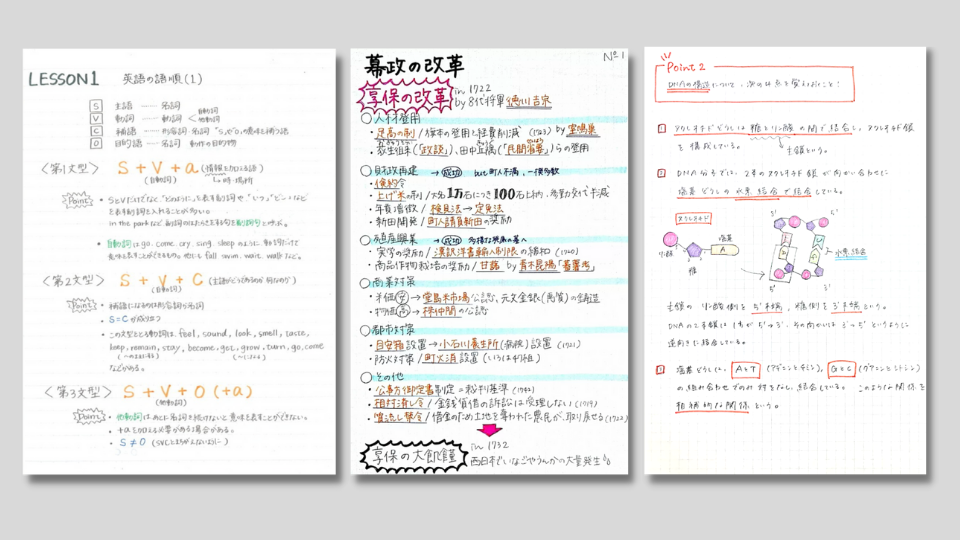 LESSON 1 英語の語順(1)
S 主語 …… 名詞
V 動詞 …… 動詞 < 自動詞 他動詞
C 補語 …… 形容詞・名詞 "S,が"O,の意味を補う語
O 目的語 …… 名詞 動作の目的物
〈第1文型〉 S + V + a (情報を加える語)
(自動詞) 時・場所
Point
in the park など
を副詞句と呼ぶ。
・自動詞は go, come, cry, sing, sleep のように 動詞だけで
fall, swim, wait, walk など。
〈第2文型〉 S + V + C
(自動詞)
Point ・補語になるのは形容詞か名詞
・S=C が成り立つ
・この文型をとる動詞は、feel, sound, look, smell, taste,
keep, remain, stay, become, get, grow, turn, go, come
などがある。
〈第3文型〉 S + V + O (+a)
(他動詞)
Point ・他動詞は、あとに名詞を続けないと意味を表すことができない。
・+aを加える必要がある場合がある。
・S≠O (SVCとまちがえないように)
No 1
幕政の改革
享保の改革 in 1722
by 8代将軍 徳川吉宗
○人材登用
・足高の制 / 旗本の登用と経費削減 (1723) by 室鳩巣
・荻生徂徠「政談」、田中丘隅「民間省要」らの登用
○財政再建 → 成功 but 町人不満、一揆多数
・倹約令
・上げ米の制 / 大名1万石につき100石上納、参勤交代半減
・年貢増徴 / 検見法→定免法
・新田開発 / 町人請負新田の奨励
○殖産興業 → 成功
・実学の奨励 / 漢訳洋書輸入制限の緩和 (1720)
・商品作物栽培の奨励 / 甘藷 by 青木昆陽「蕃薯考」
○商業対策
・米価安→堂島米市場公認、元文金銀(良質)の鋳造
・物価高→株仲間の公認
○都市対策
・目安箱設置→小石川養生所(病院)設置 (1721)
・防火対策 / 町火消設置 (いろは47組)
○その他
・公事方御定書制定=裁判基準 (1742)
・相対済し令 / 金銭貸借の訴訟は受理しない (1719)
・質流し禁令 / 借金のため土地を奪われた農民が、取り戻せる (1722)
享保の大飢饉 in 1732
西日本でいなごやうんかの大量発生
Point 2
DNAの構造について、次の4点を覚えておこう!
1 ヌクレオチドどうしは糖とリン酸の間で結合し、ヌクレオチド鎖
を構成している。 主鎖という。
2 DNA分子では、2本のヌクレオチド鎖が向かい合わせに
塩基どうしの水素結合で結合している。
ヌクレオチド
塩基
A
リン酸
糖
5' 3'
水素結合
3' 5'
主鎖のリン酸側を5'末端、糖側を3'末端という。
DNAの2本鎖は1本が5'→3'、その向かいは3'→5'というように
逆向きに結合している。
塩基どうしは、AとT (アデニンとチミン)、GとC (グアニンとシトシン)
の組み合わせでのみ対をなし、結合している。このような関係を
相補的な関係という。